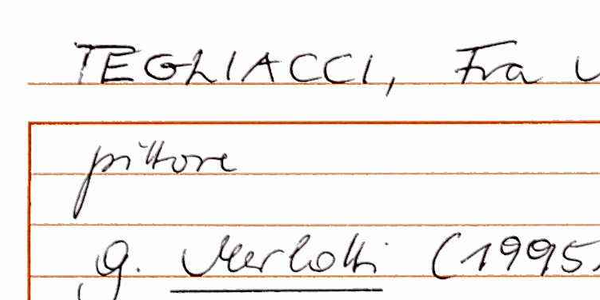 TEGLIACCI, Fra
pittore
g. Merlotti (1995)